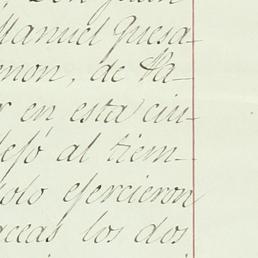 Manuel Quesa-
mon, de Va-
r en esta ciu-
dejó al tiem-
solo ejercieron
aceas los dos